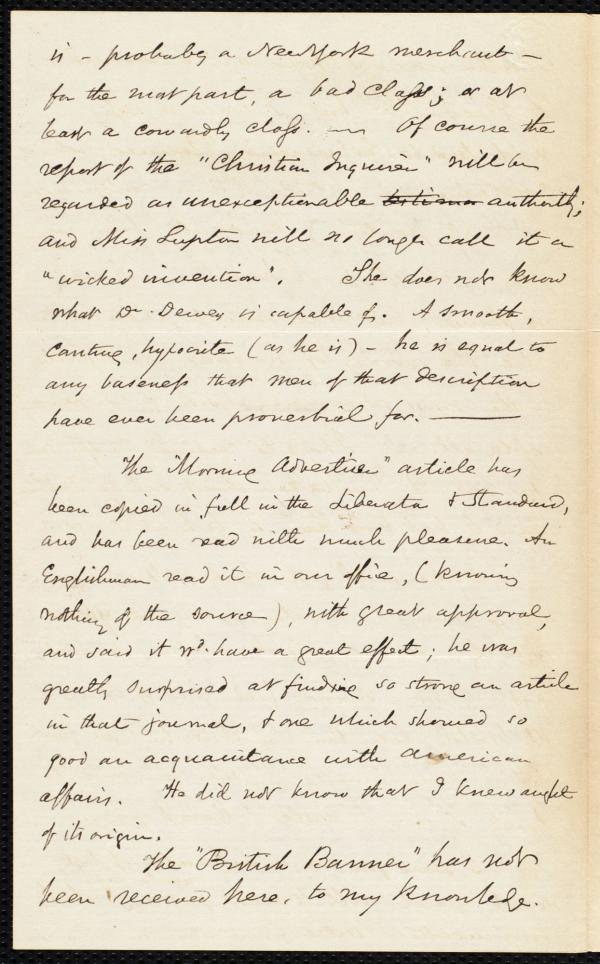 is - probably a New York merchant -
for the most part, a bad class; or at
least a cowardly class. — Of course the
report of the "Christian Inquirer" will be
regarded as unexceptionable authority;
and Miss Lupton will no longer call it a
"wicked invention". She does not know
what Dr. Dewey is capable of. A smooth,
canting, hypocrite (as he is) - he is equal to
any baseness that men of that description
have ever been proverbial for. —
The "Morning Advertiser" article has
been copied in full in the Liberator & Standard,
and has been read with much pleasure. An
Englishman read it in our office, (knowing
nothing of the source), with great approval,
and said it wd. have a great effect; he was
greatly surprised at finding so strong an article
in that journal, & one which showed so
good an acquaintance with American
affairs. He did not know that I knew aught
of its origin.
The "British Banner" has not
been received here, to my knowledge.